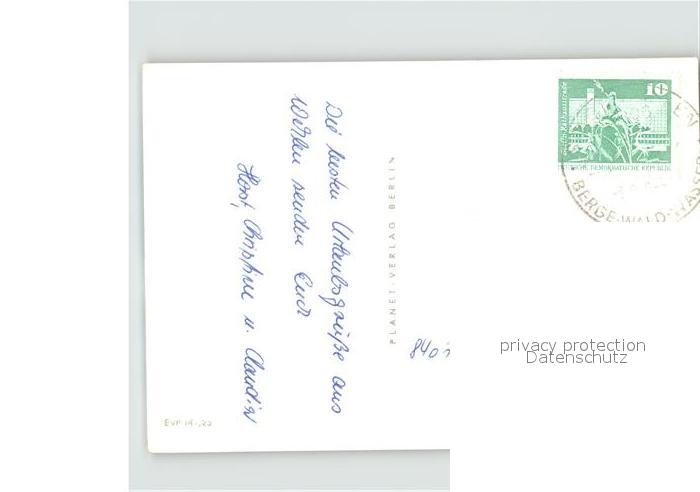 Die besten Urlaubsgrüße aus
senden Euch
Horst, Christine u. Claudia
PLANET-VERLAG BERLIN
10
DEMOKRATISCHE REPUBLIK
EN
BERGE-WALD-WASSER
840
privacy protection
Datenschutz
EVP